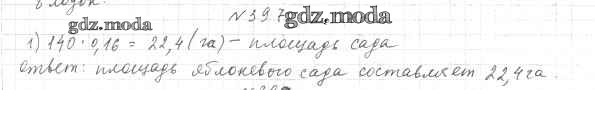 в лодок.
№397
gdz.moda
gdz.moda
1) 140 · 0,16 = 22,4 (га) – площадь сада
ответ: площадь яблоневого сада составляет 22,4 га.